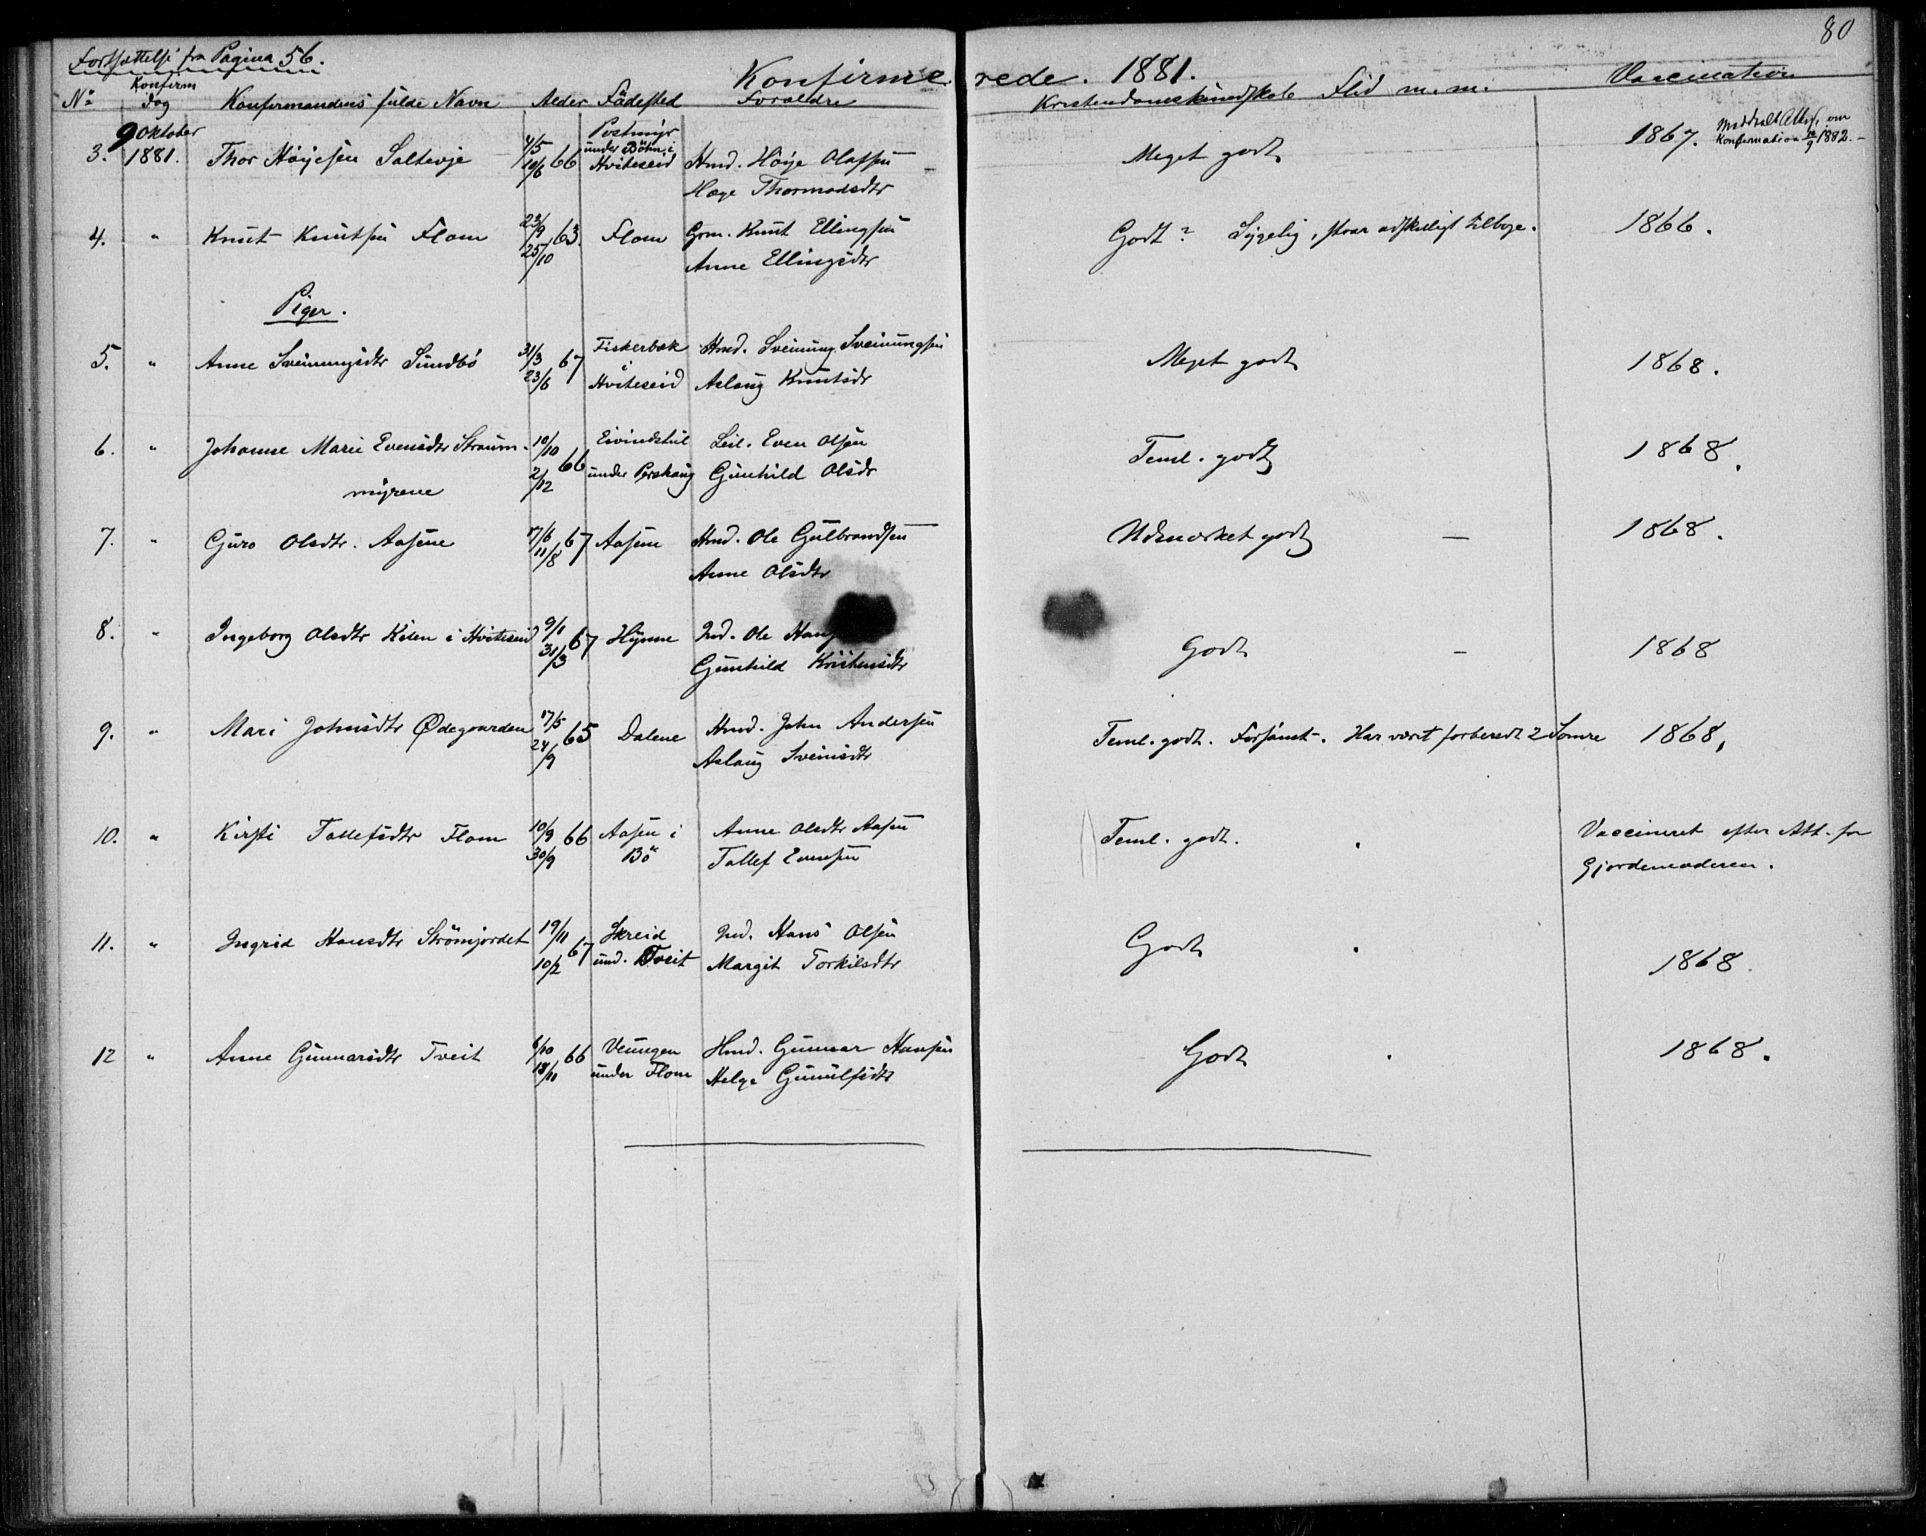 80
Fortsættelse fra Pagina 56.
Konfirmerede. 1881.
No Konfirm Dag Konfirmandens fulde Navn Alder Födested Forældre Kristendomskundskab Flid m. m. Vaccination
9 Oktober Postmyr
3. 1881. Thor Höyesen Saltevje 4/5 10/6 66 under Böhn i Hviteseid Hmd. Höye Olafsen Meget godt 1867. Meddelt Attest om Konfirmation 1882.
Hæge Thormodsdtr
4. " Knut Knutsen Flom 22/9 25/10 63. Flom Grm. Knut Ellingsen Godt? Sygelig, staar adskilligt tilbage. 1866.
Anne Ellingsdtr
Piger.
5. " Anne Sveinungsdtr Sundbö 31/3 23/6 67 Fiskerbæk i Hviteseid Hmd. Sveinung Sveinungsen Meget godt 1868.
Aslaug Knutsdr
6. " Johanne Marie Evensdtr Straum- 10/10 2/12 66 Eivindstul Leil. Even Olsen Teml. godt 1868.
myrene under Gunhild Olsdr
7. " Guro Olsdtr. Aasene 17/6 11/8 67 Aasene Hmd. Ole Gulbrandsen Udmærket godt — 1868.
Anne Olsdtr
8. " Ingeborg Olsdtr Kilen i Hviteseid 9/1 31/3 67 Hynne Ind. Ole Godt — 1868
Gunhild Kristensdtr
9. " Mari Johnsdtr Ødegaarden 17/5 24/9 65 Dalene Hmd. John Andersen Teml. godt. Forsömt. Har været forberedt 2 Somre 1868.
Aslaug Sveinsdtr
10. " Kirsti Tallefsdtr Flom 10/9 30/9 66 Aasen i Bö Anne Olsdtr Aasen Teml. godt. Vaccineret efter Att. fra
Tallef Evensen Gjordemoderen.
11. " Ingrid Hansdtr Strömjordet 19/11 10/2 67 Skreid und. Tveit Ind. Hans Olsen Godt 1868.
Margit Torkilsdtr
12 " Anne Gunnarsdtr Tveit 6/10 18/11 66 Veungen Hmd. Gunnar Hansen Godt 1868.
under Flom Helge Gunulfsdtr